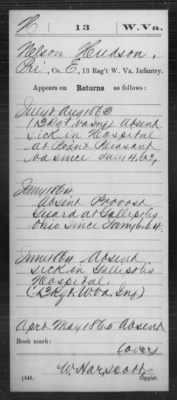 H | 13 | W. Va.
Nelson Hudson,
Pri, Co. E, 13 Reg't W. Va. Infantry.
Appears on Returns as follows:
July & Aug 1863
(13 Rgt Va Inf) Absent
Sick in Hospital
at Point Pleasant
Va since July 4, 63,
Jany 1864
Absent Provost
Guard at Gallipolis
Ohio since Jany 64
June 1864 Absent
sick in Gallipolis
Hospital.
(13 Rgt W Va Inf)
Apr & May 1865 Absent
Book mark:
(over)
W. Harpsoott
(546) Copyist.